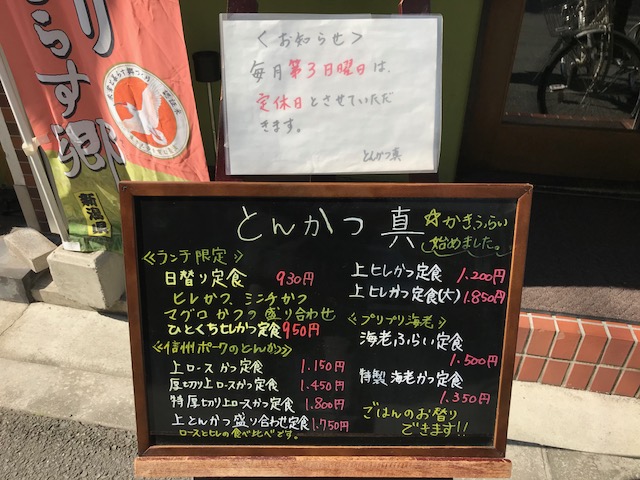 ＜お知らせ＞
毎月第3日曜日は、
定休日とさせていただ
きます。
とんかつ真
らす郷
新潟
とんかつ 真
☆かきふらい
始めました。
≪ランチ限定≫
日替り定食 930円
ヒレかつ、ミンチかつ
マグロかつの盛り合わせ
ひとくちヒレかつ定食 950円
≪信州ポークのとんかつ≫
上ロースかつ定食 1.150円
厚切り上ロースかつ定食 1.450円
特厚切り上ロースかつ定食 1.800円
上とんかつ盛り合わせ定食 1.750円
ロースとヒレの食べ比べです。
上ヒレかつ定食 1.200円
上ヒレかつ定食(大) 1.850円
≪プリプリ海老≫
海老ふらい定食
1.500円
特製 海老かつ定食
1.350円
ごはんのお替り
できます!!